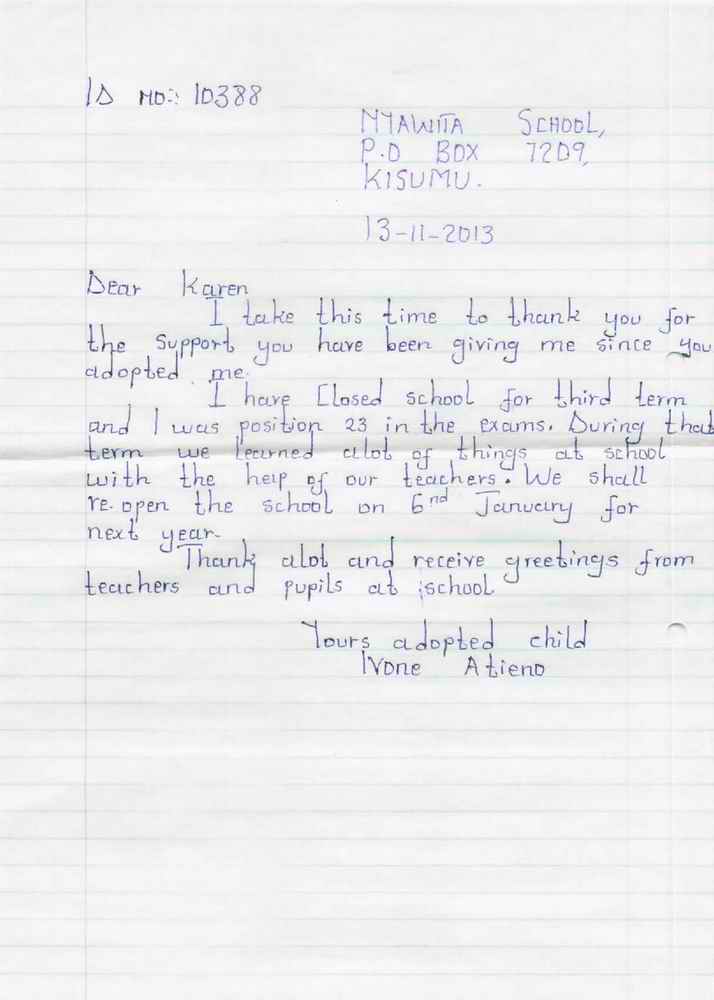 ID NO: 10388
NYAWITA SCHOOL,
P.O BOX 7209,
KISUMU.
13-11-2013
Dear Karen
I take this time to thank you for
the support you have been giving me since you
adopted me.
I have Closed school for third term
and I was position 23 in the exams. During that
term we learned alot of things at school
with the help of our teachers. We shall
re-open the school on 6nd January for
next year.
Thank alot and receive greetings from
teachers and pupils at school
Yours adopted child
Ivone Atieno